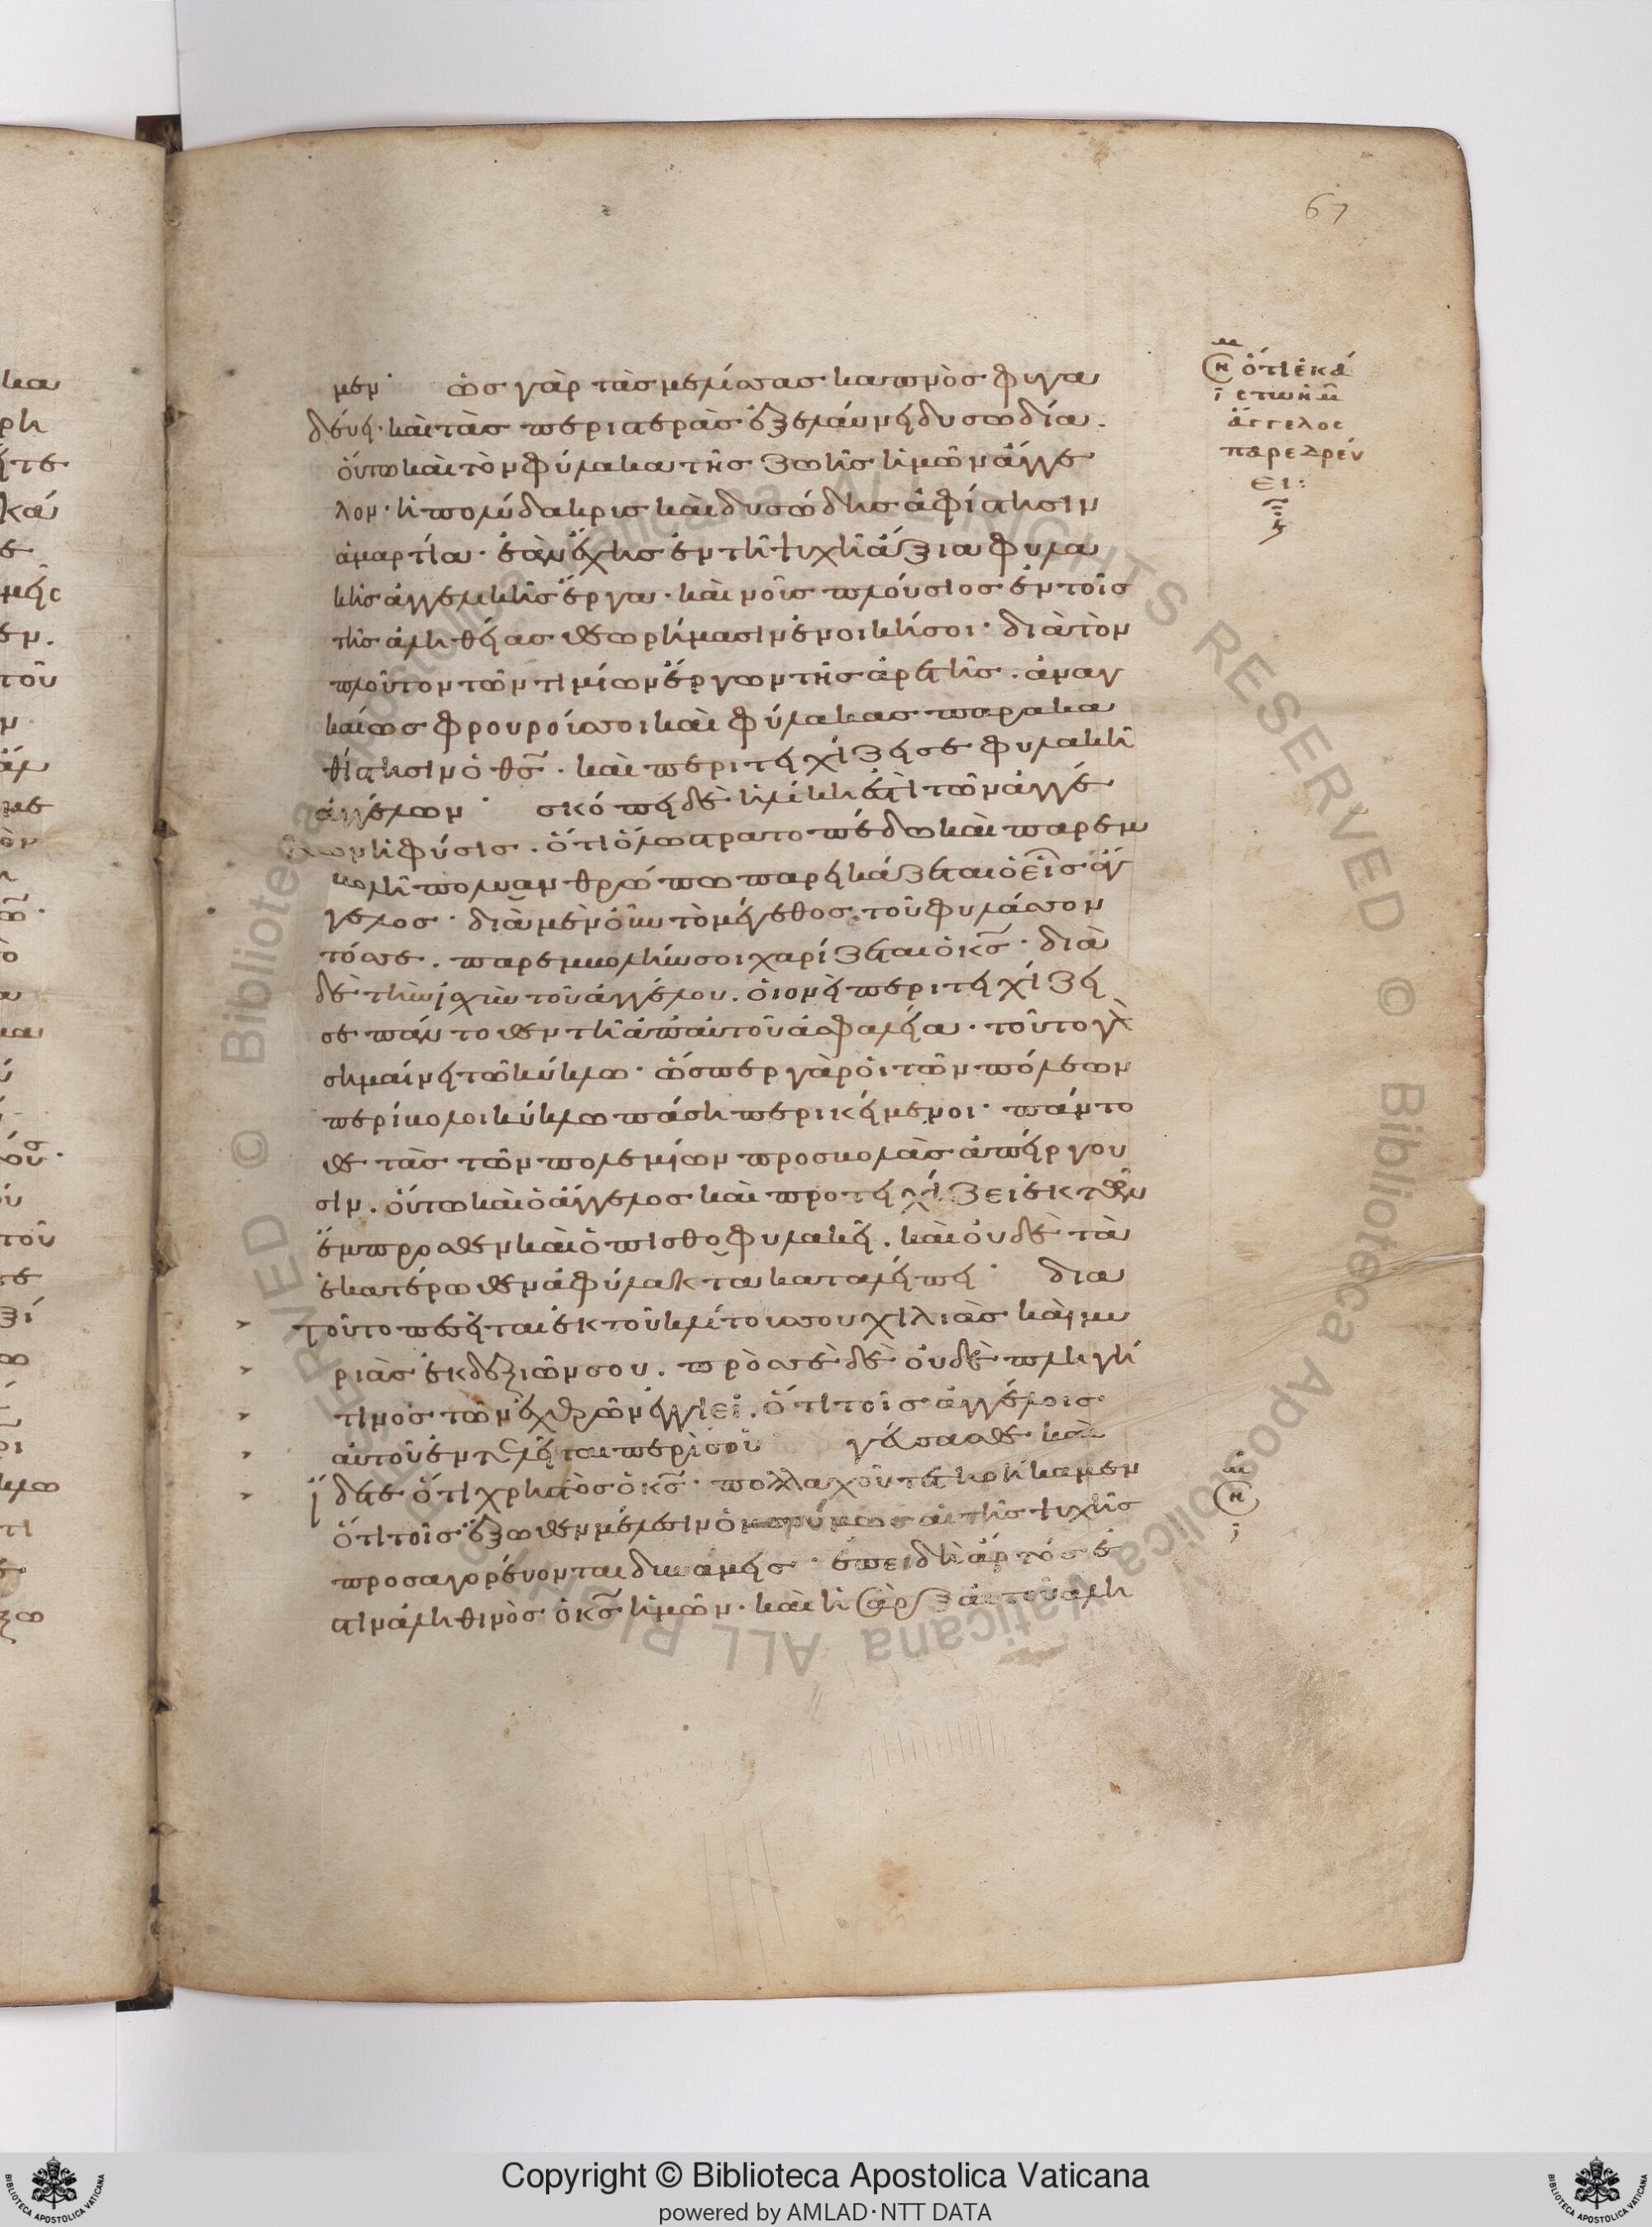 67
μεν· ὡς γὰρ τὰς μελίσσας καπνὸς φυγα
δεύει· καὶ τὰς περιστερὰς ἐξελαύνει δυσωδία.
οὕτω καὶ τὸν φύλακα τῆς ζωῆς ἡμῶν ἄγγε
λον· ἡ πολύδακρις καὶ δυσώδης ἀφίστησιν
ἁμαρτία· ἐὰν ἔχης ἐν τῆ ψυχῆ ἄξια φυλα
κῆς ἀγγελικῆς ἔργα· καὶ νοῦς πλούσιος ἐν τοῖς
τῆς ἀληθείας θεωρήμασιν ἐνοικήσοι· διὰ τὸν
πλοῦτον τῶν τιμίων ἔργων τῆς ἀρετῆς. ἀναγ
καίως φρουροί σοι καὶ φύλακας παρακα
θίστησιν ὁ θς̅. καὶ περιτειχίζει σε φυλακῆ
ἀγγέλων· σκόπει δὲ ἡλίκη ἐστὶ τῶν ἀγγέ
λων ἡ φύσις. ὅτι ὅλω στρατοπέδω καὶ παρεμ
βολῆ πολυανθρώπω παρεικάζεται ὁ εἷς ἄγ
γελος· διὰ μὲν οὖν τὸ μέγεθος τοῦ φυλάσσον
τός σε. παρεμβολήν σοι χαρίζεται ὁ κς̅· διὰ
δὲ τὴν ἰσχὺν τοῦ ἀγγέλου. οἱονεὶ περιτειχίζει
σε πάντοθεν τῆ ἀπ' αὐτοῦ ἀσφαλεία. τοῦτο γὰρ
σημαίνει τῶ κύκλω· ὥσπερ γὰρ οἱ τῶν πόλεων
περίβολοι κύκλω πάση περικείμενοι· πάντο
θε τὰς τῶν πολεμίων προσβολὰς ἀπείργου
σιν. οὕτω καὶ ὁ ἄγγελος καὶ προτειχίζει ἐκ τῶν
ἔμπροσθεν καὶ ὀπισθοφυλακεῖ. καὶ οὐδὲ τὰ
ἑκατέρωθεν ἀφύλακτα καταλείπει· δια
τοῦτο πεσεῖται ἐκ τοῦ κλίτους σου χιλιὰς καὶ μυ
ριὰς ἐκ δεξιῶν σου. πρὸς σὲ δὲ οὐδὲ πληγή
τινος τῶν ἐχθρῶν ἐγγιεῖ. ὅτι τοῖς ἀγγέλοις
αὐτοῦ ἐντελεῖται περὶ σοῦ γεύσασθε καὶ
ἴδετε ὅτι χρηστὸς ὁ κς̅· πολλαχοῦ τετηρήκαμεν
ὅτι τοῖς ἔξωθεν μέλεσιν ὁμωνύμως αἱ τῆς ψυχῆς
προσαγορεύονται δυνάμεις· ἐπειδὴ ἄρτός ἐ
στιν ἀληθινὸς ὁ κς̅ ἡμῶν. καὶ ἡ σὰρξ αὐτοῦ ἀλη
ὅτι ἑκά
ἄγγελος
παρεδρεύ
ει: